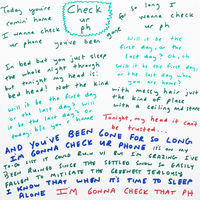 Today you're
comin' home
I wanna check
ur phone
you've been gone
Check
ur
ph
for so long I
wanna
check ur
ph
In bed but you just sleep
the whole night through
but tonight my head is:
bad head! Not the kind
Will it be the
first day, or the
last day? Oh, oh
Will it be the first day,
or the last day when
you are home?
with messy hair just
the kind of place
with a ceiling and stare
Will it be the first day
or the last day? Will
it be the
Tonight, my head it can't
be trusted...
AND YOU'VE BEEN GONE FOR SO LONG
I'M GONNA CHECK UR PHONE IT'S ON MY
TO DO LIST IT COULD RUIN US BUT I'M CRAZING I'VE
BEEN RUINED SINCE THE SETTLED SNOW SO EASILY
FALLEN TO IMITATE THE GREENEST JEALOUSY
I KNOW THAT WHEN IT'S TIME TO SLEEP
ALONE I'M GONNA CHECK THAT PH